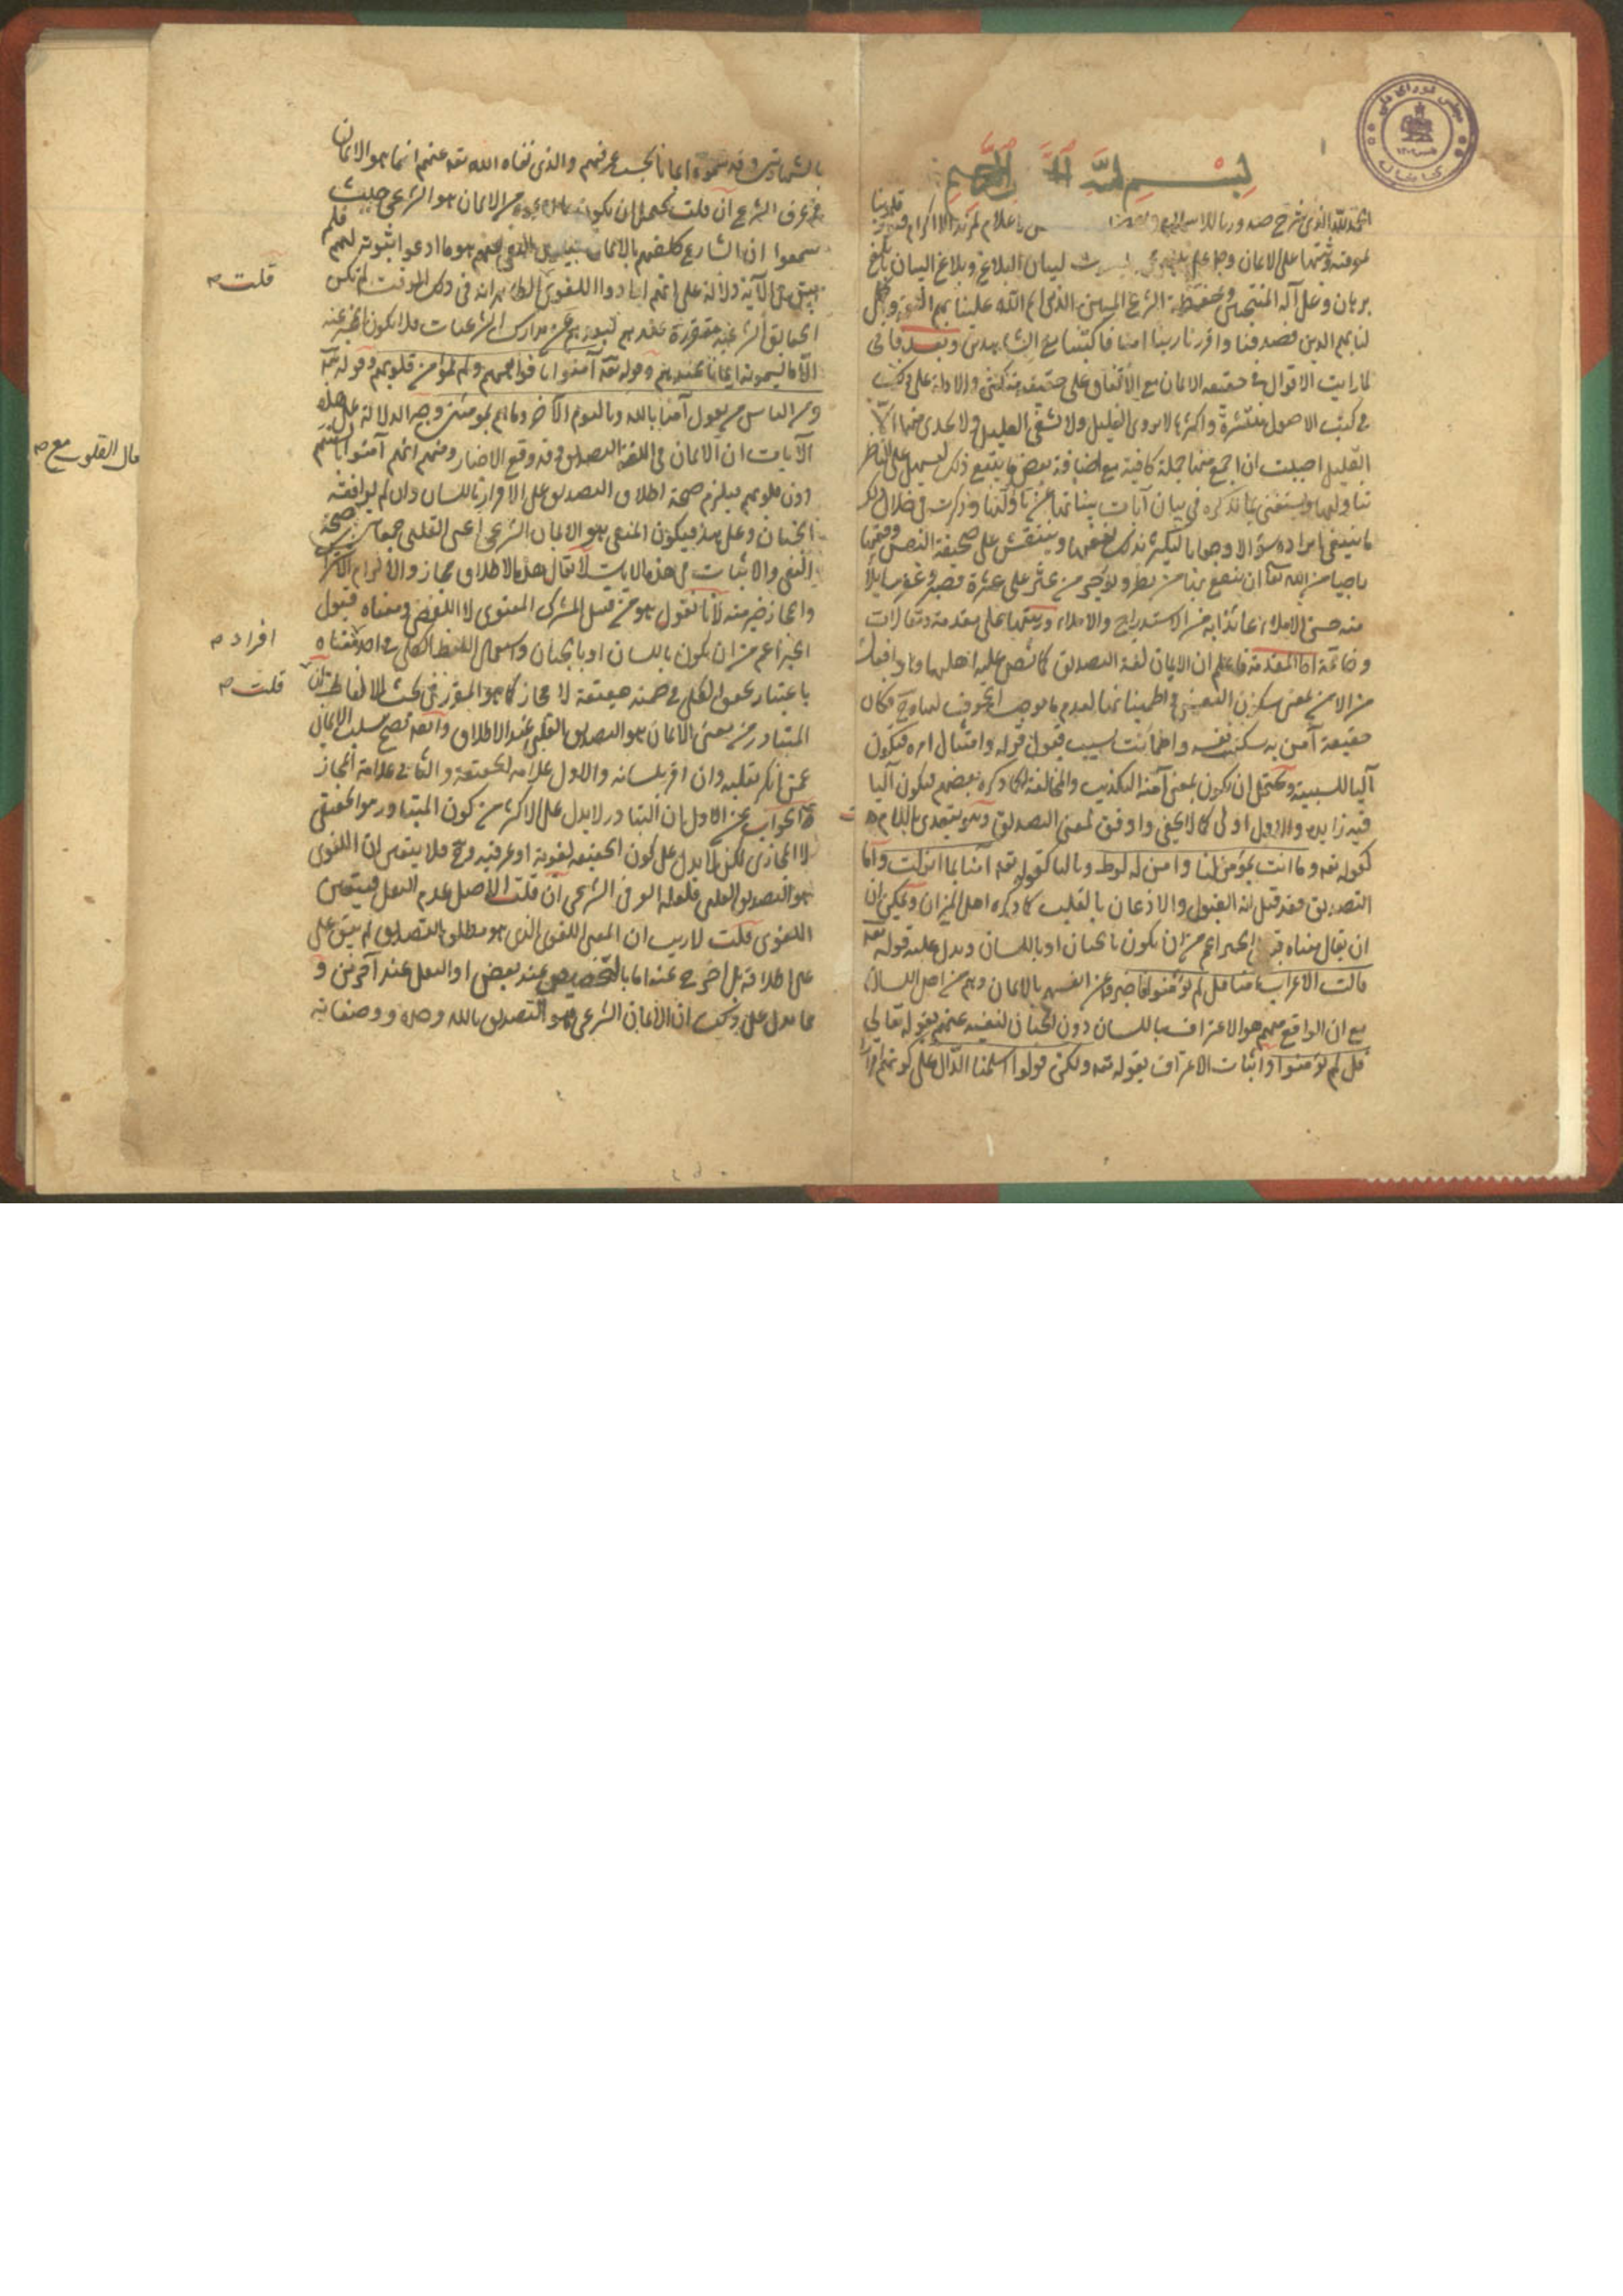 بسم الله الرحمن الرحيم
الحمد لله الذي شرح صدورنا للاسلام باعلام لمزيد الاكرام قلوبنا
لمعرفته وثبتها على الايمان لبيان البلاغ وبلاغ البيان بابلغ
برهان وعلى آله المنتجبين وحفظة الشرع المبين الذين اتم الله علينا بهم النعمة واكمل
لنا بهم الدين فصدقنا واقررنا ربنا آمنا فاكتبنا مع الشاهدين وبعد فاني
لما رايت الاقوال في حقيقة الايمان مع الاتفاق على حقيته متكثرة والادلة على ذلك
في كتب الاصول منتشرة واكثرها لا يروي الغليل ولا تشفي العليل ولا يجدي منها الا
القليل احببت ان اجمع منها جملة كافية مع اضافة بعض ما يتبع ذلك ليسهل على الناظر
تناولها ويستغني بما نذكره في بيان آيات بيناتها عن تاويلها وذكرت في خلال ذلك
ما ينبغي ايراده سؤالا وجوابا ليكثر بذلك نفعها وينتقش على صحيفة النفس وقعها
راجيا من الله تعالى ان ينفع بها من نظر ويؤجر من عثر على عثرة فصبر وغفر سايلا
منه حسن الاملاء عائذا به من الاستدراج والاملاء ورتبتها على مقدمة ومقالات
وخاتمة اما المقدمة فاعلم ان الايمان لغة التصديق كما نص عليه اهلها وهو افعال
من الامن بمعنى سكون النفس واطمينانها لعدم ما يوجب الخوف لها وح فكان
حقيقة آمن به سكنت نفسه واطمأنت بسبب قبول قوله وامتثال امره فتكون
الباء للسببية ويحتمل ان يكون بمعنى آمنه التكذيب والمخالفة كما ذكره بعضهم فيكون الباء
فيه زايدة والاول اولى كما لا يخفى واوفق لمعنى التصديق وهو يتعدى باللام
كقوله تعه وما انت بمؤمن لنا وآمن له لوط وبالباء كقوله تعه آمنا بما انزلت واما
التصديق فقد قيل انه القبول والاذعان بالقلب كما ذكره اهل الميزان ويمكن ان
ان يقال معناه قبول الخبر اعم من ان يكون بالجنان او باللسان ويدل عليه قوله تعه
قالت الاعراب آمنا قل لم تؤمنوا فاخبروا عن انفسهم بالايمان وهم من اهل اللسان
مع ان الواقع منهم هو الاعتراف باللسان دون الجنان لنفيه عنهم بقوله تعالى
قل لم تؤمنوا واثبات الاعتراف بقوله تعه ولكن قولوا اسلمنا الدال على كونه اقرارا
بالشهادتين وقد سموه ايمانا بحسب عرفهم والذي نفاه الله تعه عنهم انما هو الايمان
في عرف الشرع ان قلت يحتمل ان يكون ما ادعوه من الايمان هو الشرعي حيث
سمعوا ان الشارع كلفهم بالايمان فيكون المنفي عنهم هو ما ادعوا ثبوته لهم فلم
يبق في الآية دلالة على انهم ارادوا اللغوي قلت الظاهر انه في ذلك الوقت لم تكن
الحقايق الشرعية متقررة عندهم لبعدهم عن مدارك الشرعيات فلا يكون المخبر عنه
الا ما يسمونه ايمانا عندهم وقوله تعه آمنوا بافواههم ولم تؤمن قلوبهم وقوله تعه
ومن الناس من يقول آمنا بالله وباليوم الآخر وما هم بمؤمنين وجه الدلالة على هذه
الآيات ان الايمان في اللغة التصديق وقد وقع الاخبار عنهم انهم آمنوا بالسنتهم
دون قلوبهم فيلزم صحة اطلاق التصديق على الاقرار باللسان وان لم يوافقه
الجنان وعلى هذا فيكون المنفي هو الايمان الشرعي اعني القلبي جمعا بين صحة
النفي والاثبات في هذه الايات لا يقال هذا الاطلاق مجاز والا لزم الاشتراك
والمجاز خير منه لانا نقول هو من قبيل المشترك المعنوي لا اللفظي ومعناه قبول
الخبر اعم من ان يكون باللسان او بالجنان واستعمال اللفظ الكلي في احد افراد معناه
باعتبار تحقق الكلي في ضمنه حقيقة لا مجاز كما هو المقرر في بحث الالفاظ قلت ان
المتبادر من معنى الايمان هو التصديق القلبي عند الاطلاق وايضا يصح سلب الايمان
عمن انكر بقلبه وان اقر بلسانه والاول علامة الحقيقة والثاني علامة المجاز
الجواب عن الاول ان التبادر لا يدل على اكثر من كون المتبادر هو الحقيقي
لا المجازي لكن لا يدل على كون الحقيقة لغوية او عرفية وح فلا يتعين ان اللغوي
هو التصديق القلبي فلعله العرفي الشرعي ان قلت الاصل عدم النقل فيتعين
اللغوي قلت لا ريب ان المعنى اللغوي الذي هو مطلق التصديق لم يبق على
على اطلاقه بل اخرج عنه اما بالتخصيص عند بعض او النقل عند آخرين و
مما يدل على ذلك ان الايمان الشرعي هو التصديق بالله وحده وصفاته
قلت
مال القلوب مع
افراد
قلت